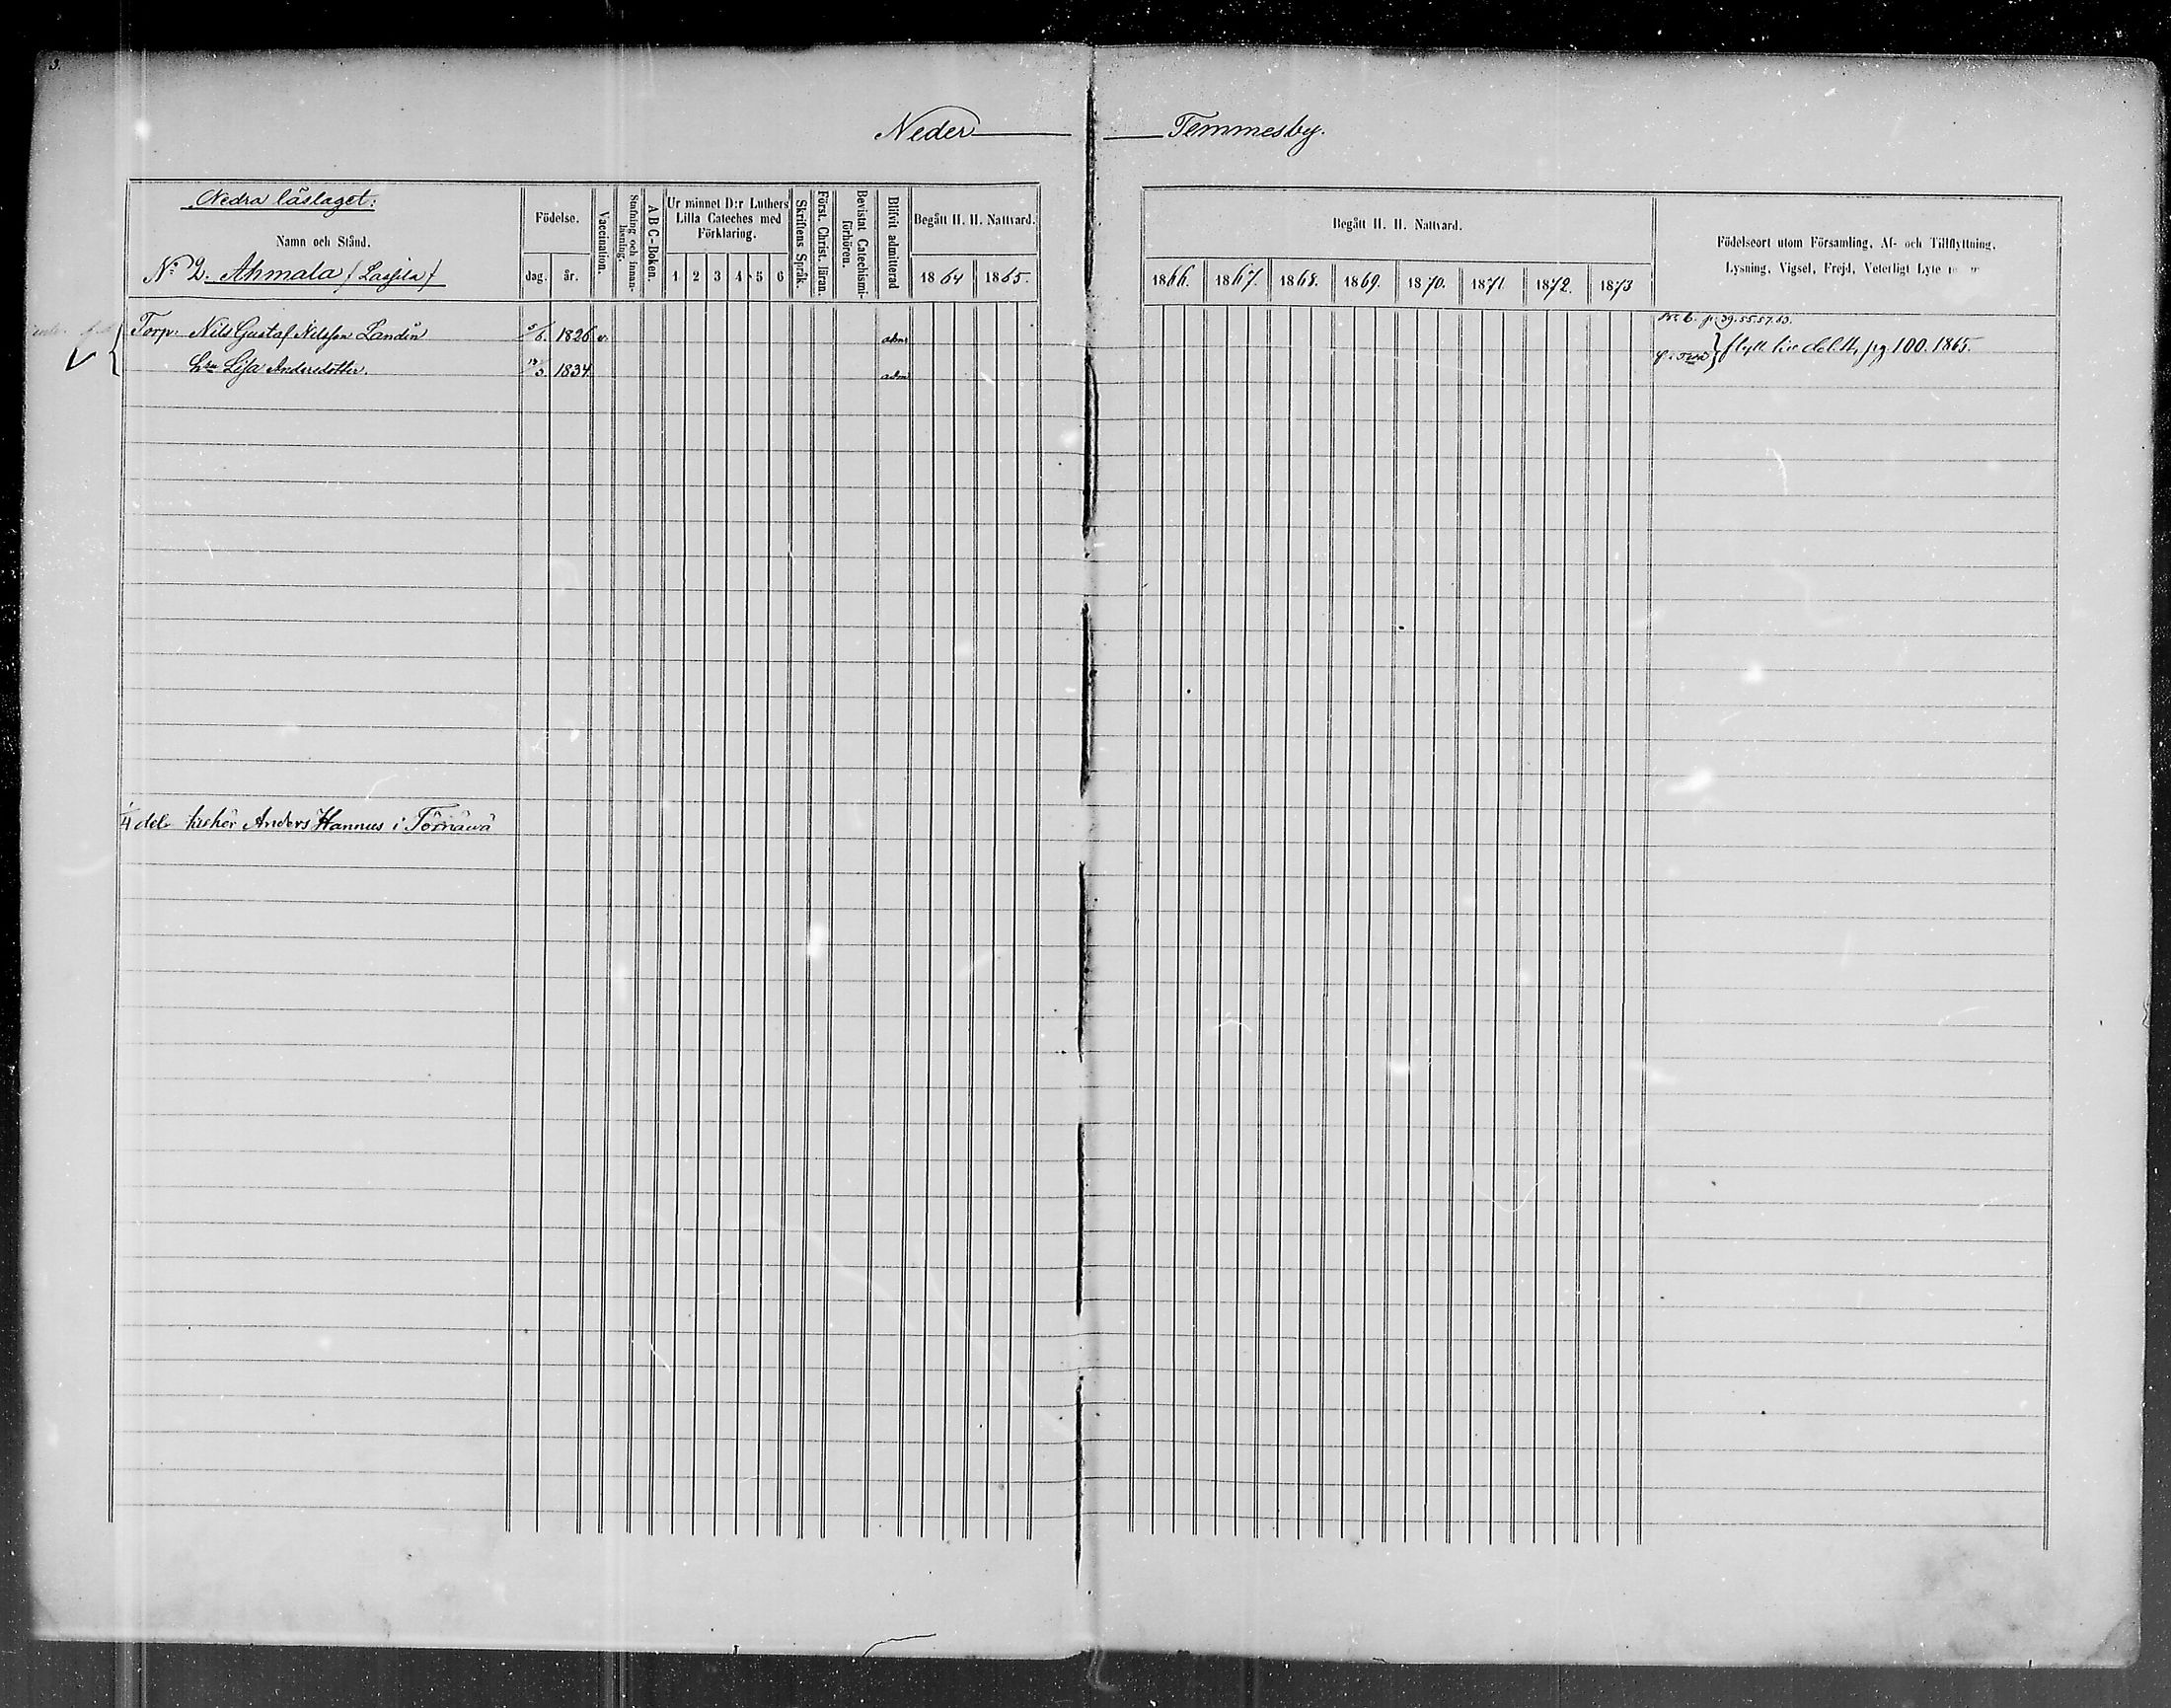 3.
Neder
Temmesby.
Nedra läslaget:
Namn och Stånd.
N:o 2. Ahmala /Lassila/
Födelse.
dag. år.
Vaccination.
Stafning och innan-läsning.
A B C-Boken.
Ur minnet D:r Luthers
Lilla Cateches med
Förklaring.
1 2 3 4 5 6
Skriftens Språk.
Först. Christ. läran.
Bevistat Catechismi-förhören.
Blifvit admitterad
Begått H. H. Nattvard.
1864 1865.
Begått H. H. Nattvard.
1866. 1867. 1868. 1869. 1870. 1871 1872. 1873
Födelseort utom Församling, Af- och Tillflyttning,
Lysning, Vigsel, Frejd, Veterligt Lyte
p. 39. 55. 57. 63.
Torp. Nils Gustaf Nilsson Landin 5/6. 1826 v. adm
Hu Lisa Andersdotter. 3 1834 adm
flytt pg 100. 1865.
1/4 del tillhör Anders Hannus i Törnävä